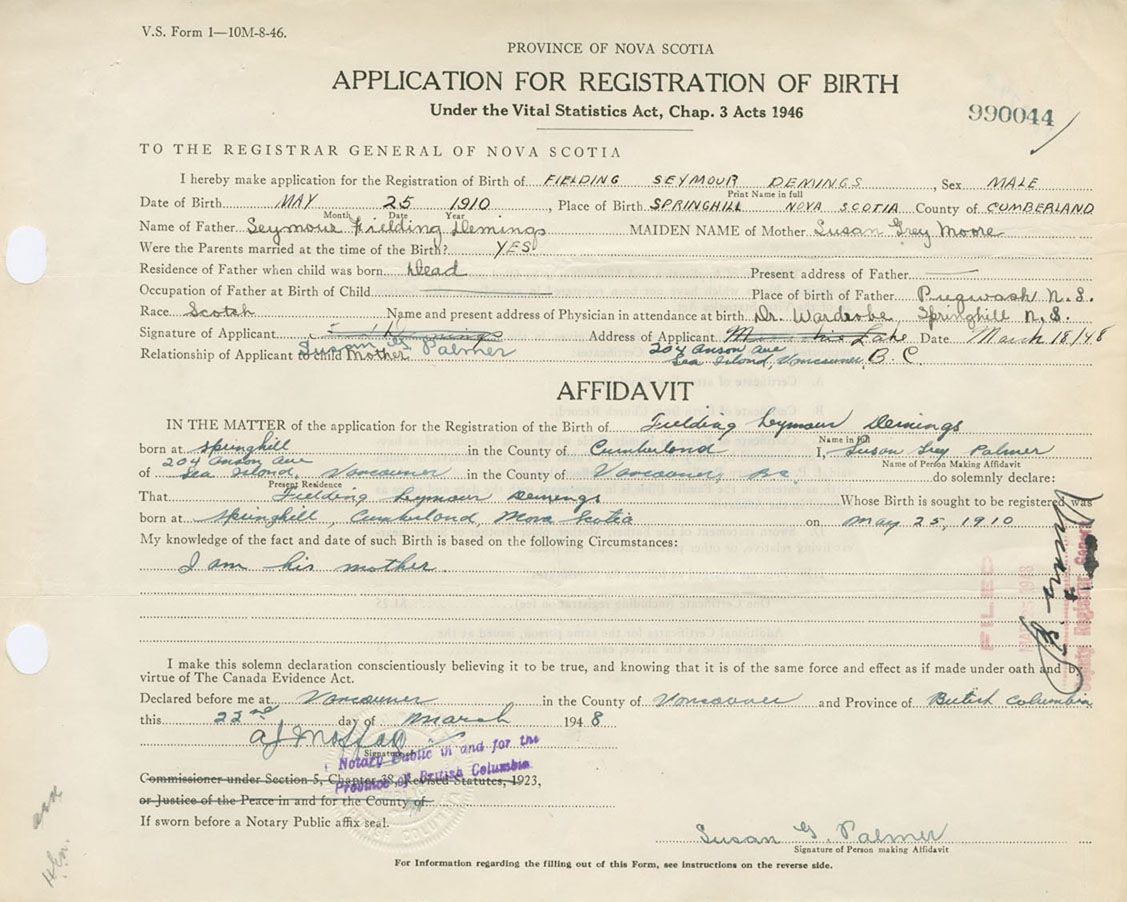 V.S. Form 1—10M-8-46.
PROVINCE OF NOVA SCOTIA
APPLICATION FOR REGISTRATION OF BIRTH
Under the Vital Statistics Act, Chap. 3 Acts 1946
990044
TO THE REGISTRAR GENERAL OF NOVA SCOTIA
I hereby make application for the Registration of Birth of FIELDING SEYMOUR DEMINGS, Sex MALE
Print Name in full
Date of Birth MAY 25 1910, Place of Birth SPRINGHILL NOVA SCOTIA County of CUMBERLAND
Month Date Year
Name of Father Seymour Fielding Demings MAIDEN NAME of Mother Susan Grey Moore
Were the Parents married at the time of the Birth? YES
Residence of Father when child was born Dead Present address of Father —
Occupation of Father at Birth of Child — Place of birth of Father Pugwash N.S.
Race Scotch Name and present address of Physician in attendance at birth Dr. Wardrobe, Springhill N.S.
Signature of Applicant Susan G. Palmer Address of Applicant Date March 18/48
204 Anson Ave
Relationship of Applicant to child Mother Sea Island, Vancouver, B.C.
AFFIDAVIT
IN THE MATTER of the application for the Registration of the Birth of Fielding Seymour Demings
Name in full
born at Springhill in the County of Cumberland I, Susan Grey Palmer
Name of Person Making Affidavit
204 Anson Ave
of Sea Island, Vancouver in the County of Vancouver, B.C. do solemnly declare:
Present Residence
That Fielding Seymour Demings Whose Birth is sought to be registered was
born at Springhill, Cumberland, Nova Scotia on May 25, 1910
My knowledge of the fact and date of such Birth is based on the following Circumstances:
I am his mother.
FILED
I make this solemn declaration conscientiously believing it to be true, and knowing that it is of the same force and effect as if made under oath and by
virtue of The Canada Evidence Act.
Declared before me at Vancouver in the County of Vancouver and Province of British Columbia
this 22nd day of March 1948
Notary Public in and for the
Province of British Columbia
Commissioner under Section 5, Chapter 38, Revised Statutes, 1923,
or Justice of the Peace in and for the County of
If sworn before a Notary Public affix seal.
Susan G. Palmer
Signature of Person making Affidavit
For Information regarding the filling out of this Form, see instructions on the reverse side.